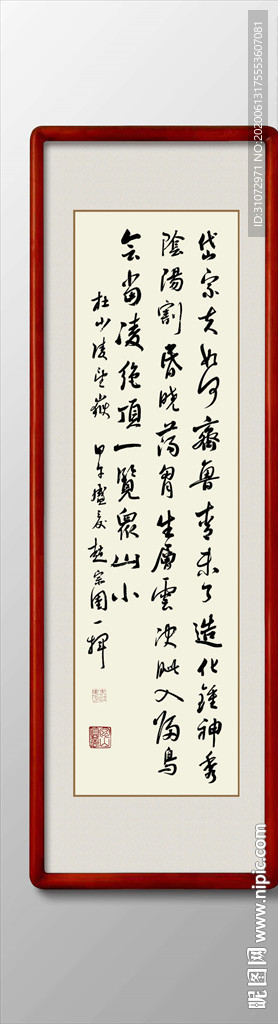 岱宗夫如何齊魯青未了造化鍾神秀
陰陽割昏曉蕩胸生層雲決眥入歸鳥
會當凌絕頂一覽眾山小
杜少陵望嶽 甲午盛夏趙宗国一揮
ID:31072971 NO:20200613175553607081
昵图网 www.nipic.com